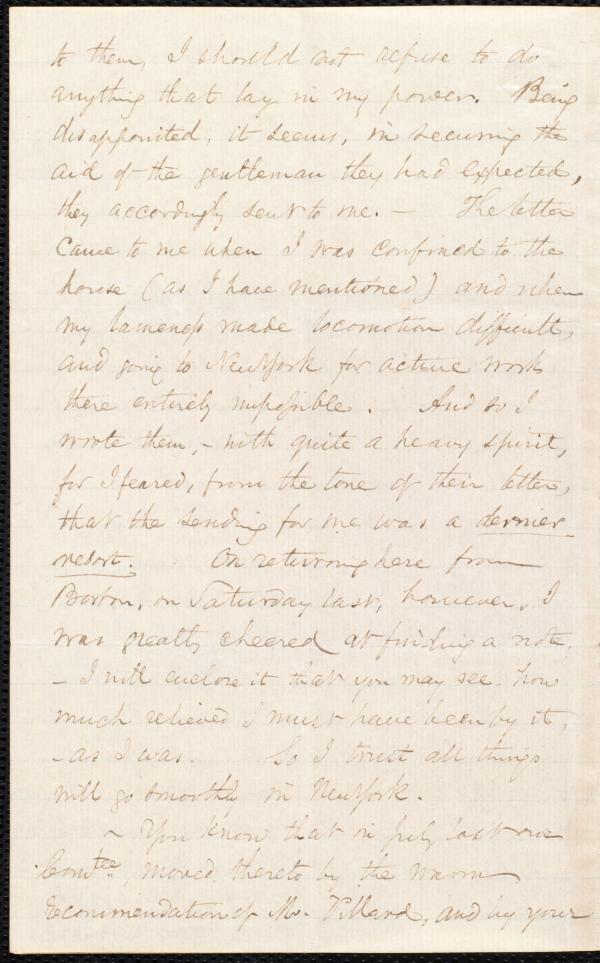 to them, I should not refuse to do
anything that lay in my power. Being
disappointed, it seems, in securing the
aid of the gentleman they had expected,
they accordingly sent to me. — The letter
came to me when I was confined to the
house (as I have mentioned) and when
my lameness made locomotion difficult,
and going to New York for active work
there entirely impossible. And so I
wrote them, – with quite a heavy spirit,
for I feared, from the tone of their letter,
that the sending for me was a dernier
resort. On returning here from
Boston, on Saturday last, however, I
was greatly cheered at finding a note.
– I will enclose it that you may see how
much relieved I must have been by it,
– as I was. So I trust all things
will go smoothly in New York.
~ You know that in July last our
Comtee, moved thereto by the warm
recommendation of Mr. Villard, and by your